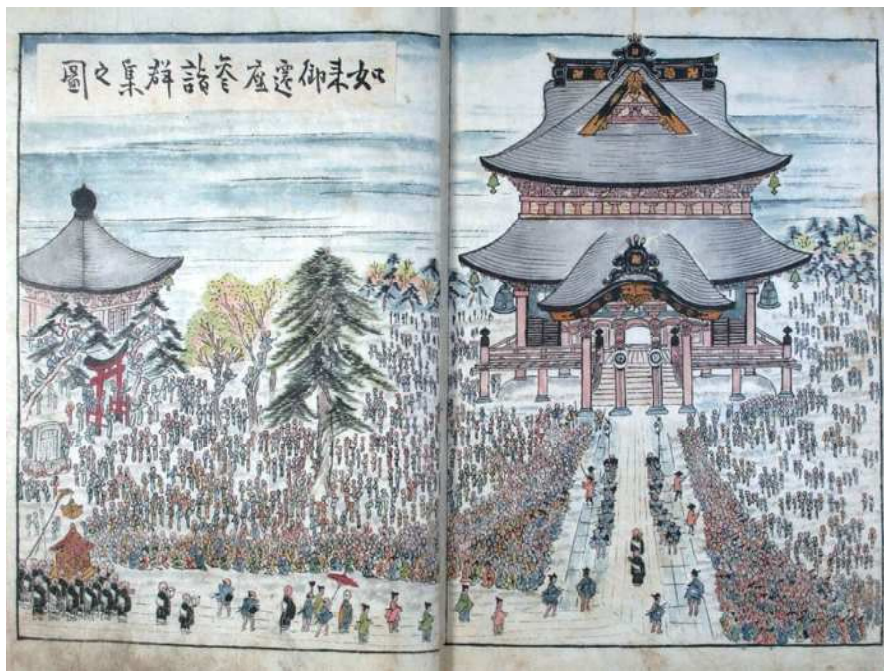 如来御遷座参詣群集之圖